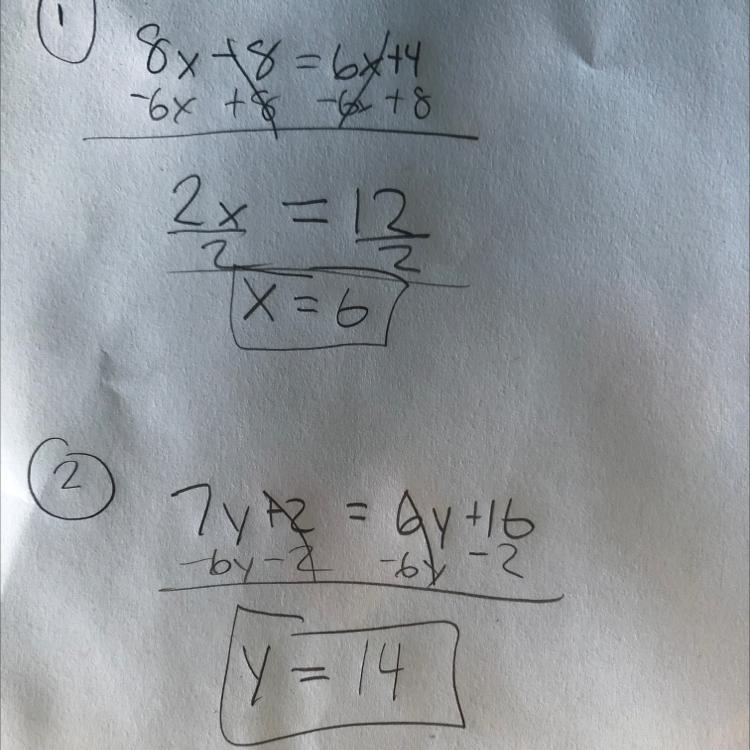 1
8x - 8 = 6x + 4
-6x + 8 -6x + 8
2x = 12
2 2
x = 6
2
7y + 2 = 6y + 16
-6y - 2 -6y - 2
y = 14